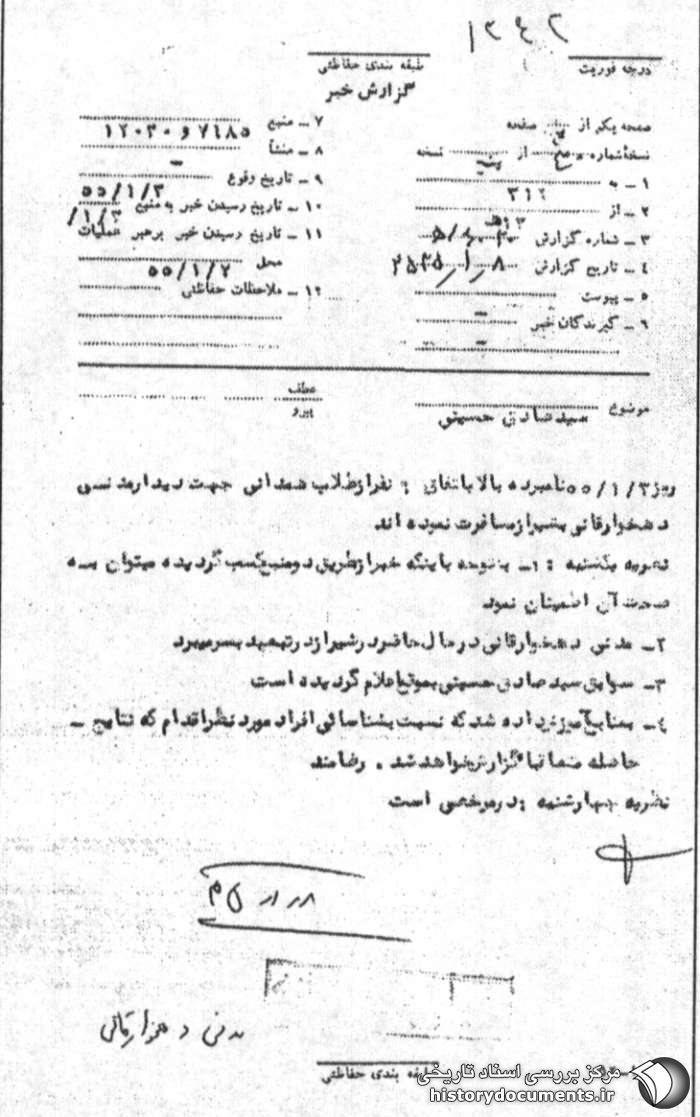 ۱۳۶۲
درجه فوریت
طبقه بندی حفاظتی
گزارش خبر
صفحه یکم از صفحه
نسخهٔ شماره از نسخه
۱ ـ به ۳۱۲
۲ ـ از
۳ ـ شماره گزارش
۴ ـ تاریخ گزارش ۲۵۳۵/۱/۸
۵ ـ پیوست
۶ ـ گیرندگان خبر
۷ ـ منبع ۷۶۸۵ و ۱۲۰۳۰
۸ ـ منشأ
۹ ـ تاریخ وقوع ۵۵/۱/۳
۱۰ ـ تاریخ رسیدن خبر به منبع ۱/۳/
۱۱ ـ تاریخ رسیدن خبر برهبر عملیات
محل ۵۵/۱/۷
۱۲ ـ ملاحظات حفاظتی
عطف
پیرو
موضوع سیدصادق حسینی
روز ۵۵/۱/۳ نامبرده بالا باتفاق ۴ نفر از طلاب همدانی جهت دیدار مدنسی
دهخوارقانی بشیراز مسافرت نموده اند
نظریه یکشنبه : ۱ـ باتوجه باینکه خبر از طریق دو منبع کسب گردیده میتوان بسه
صحت آن اطمینان نمود
۲ـ مدنی دهخوارقانی در حال حاضر در شیراز در تبعید بسر میبرد
۳ـ سوابق سید صادق حسینی بموقع اعلام گردیده است
۴ـ بمنابع آموزش داده شد که نسبت بشناسائی افراد مورد نظر اقدام که نتایج ـ
حاصله ضمائم گزارش خواهد شد . رضامند
نظریه چهارشنبه : در مرخصی است
مدنی دهخوارقانی
طبقه بندی حفاظتی
مرکز بررسی اسناد تاریخی
historydocuments.ir